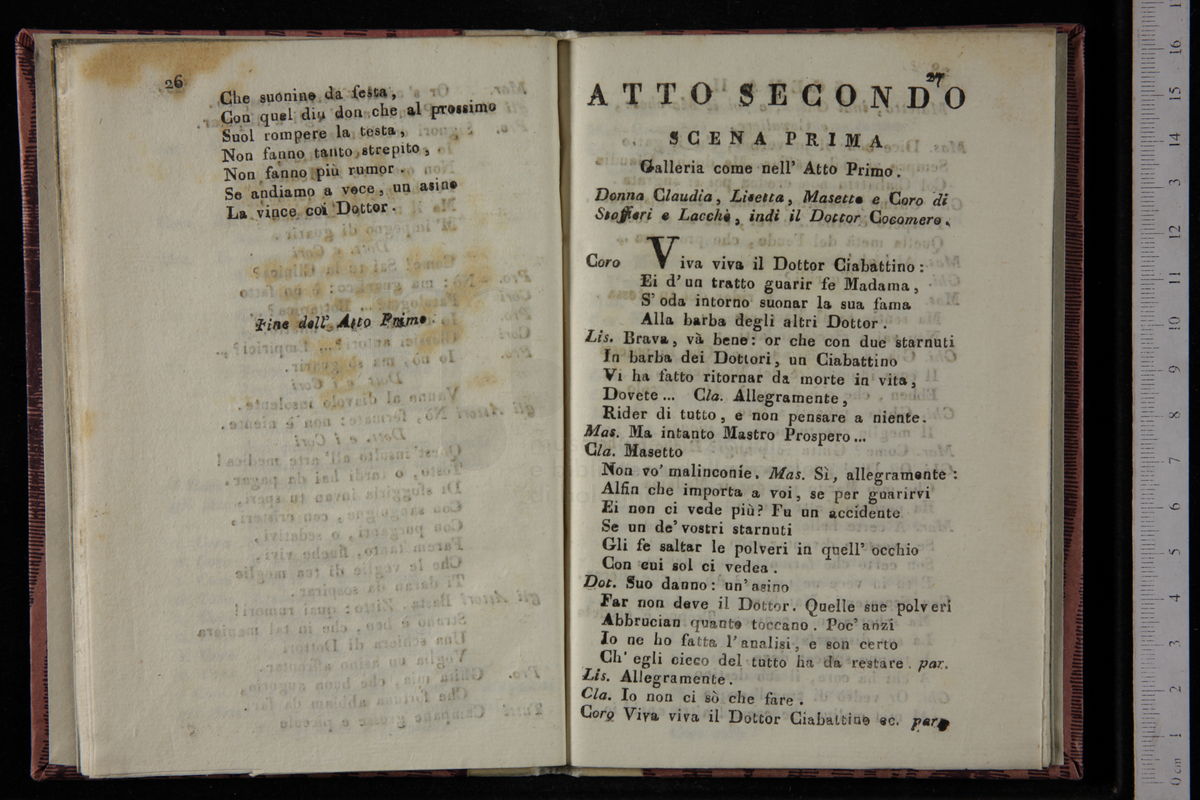 26
Che suonino da festa,
Con quel diu don che al prossimo
Suol rompere la testa,
Non fanno tanto strepito,
Non fanno più rumor.
Se andiamo a voce, un asino
La vince coi Dottor.
Fine dell' Atto Primo.
27
ATTO SECONDO
SCENA PRIMA
Galleria come nell' Atto Primo.
Donna Claudia, Lisetta, Masetto e Coro di
Staffieri e Lacchè, indi il Dottor Cocomero.
Coro Viva viva il Dottor Ciabattino:
Ei d'un tratto guarir fe Madama,
S'oda intorno suonar la sua fama
Alla barba degli altri Dottor.
Lis. Brava, và bene: or che con due starnuti
In barba dei Dottori, un Ciabattino
Vi ha fatto ritornar da morte in vita,
Dovete... Cla. Allegramente,
Rider di tutto, e non pensare a niente.
Mas. Ma intanto Mastro Prospero...
Cla. Masetto
Non vo' malinconie. Mas. Sì, allegramente:
Alfin che importa a voi, se per guarirvi
Ei non ci vede più? Fu un accidente
Se un de' vostri starnuti
Gli fe saltar le polveri in quell' occhio
Con cui sol ci vedea.
Dot. Suo danno: un' asino
Far non deve il Dottor. Quelle sue polveri
Abbrucian quanto toccano. Poc' anzi
Io ne ho fatta l'analisi, e son certo
Ch' egli cieco del tutto ha da restare. par.
Lis. Allegramente.
Cla. Io non ci sò che fare.
Coro Viva viva il Dottor Ciabattino ec. par
0 cm 1 2 3 4 5 6 7 8 9 10 11 12 13 14 15 16